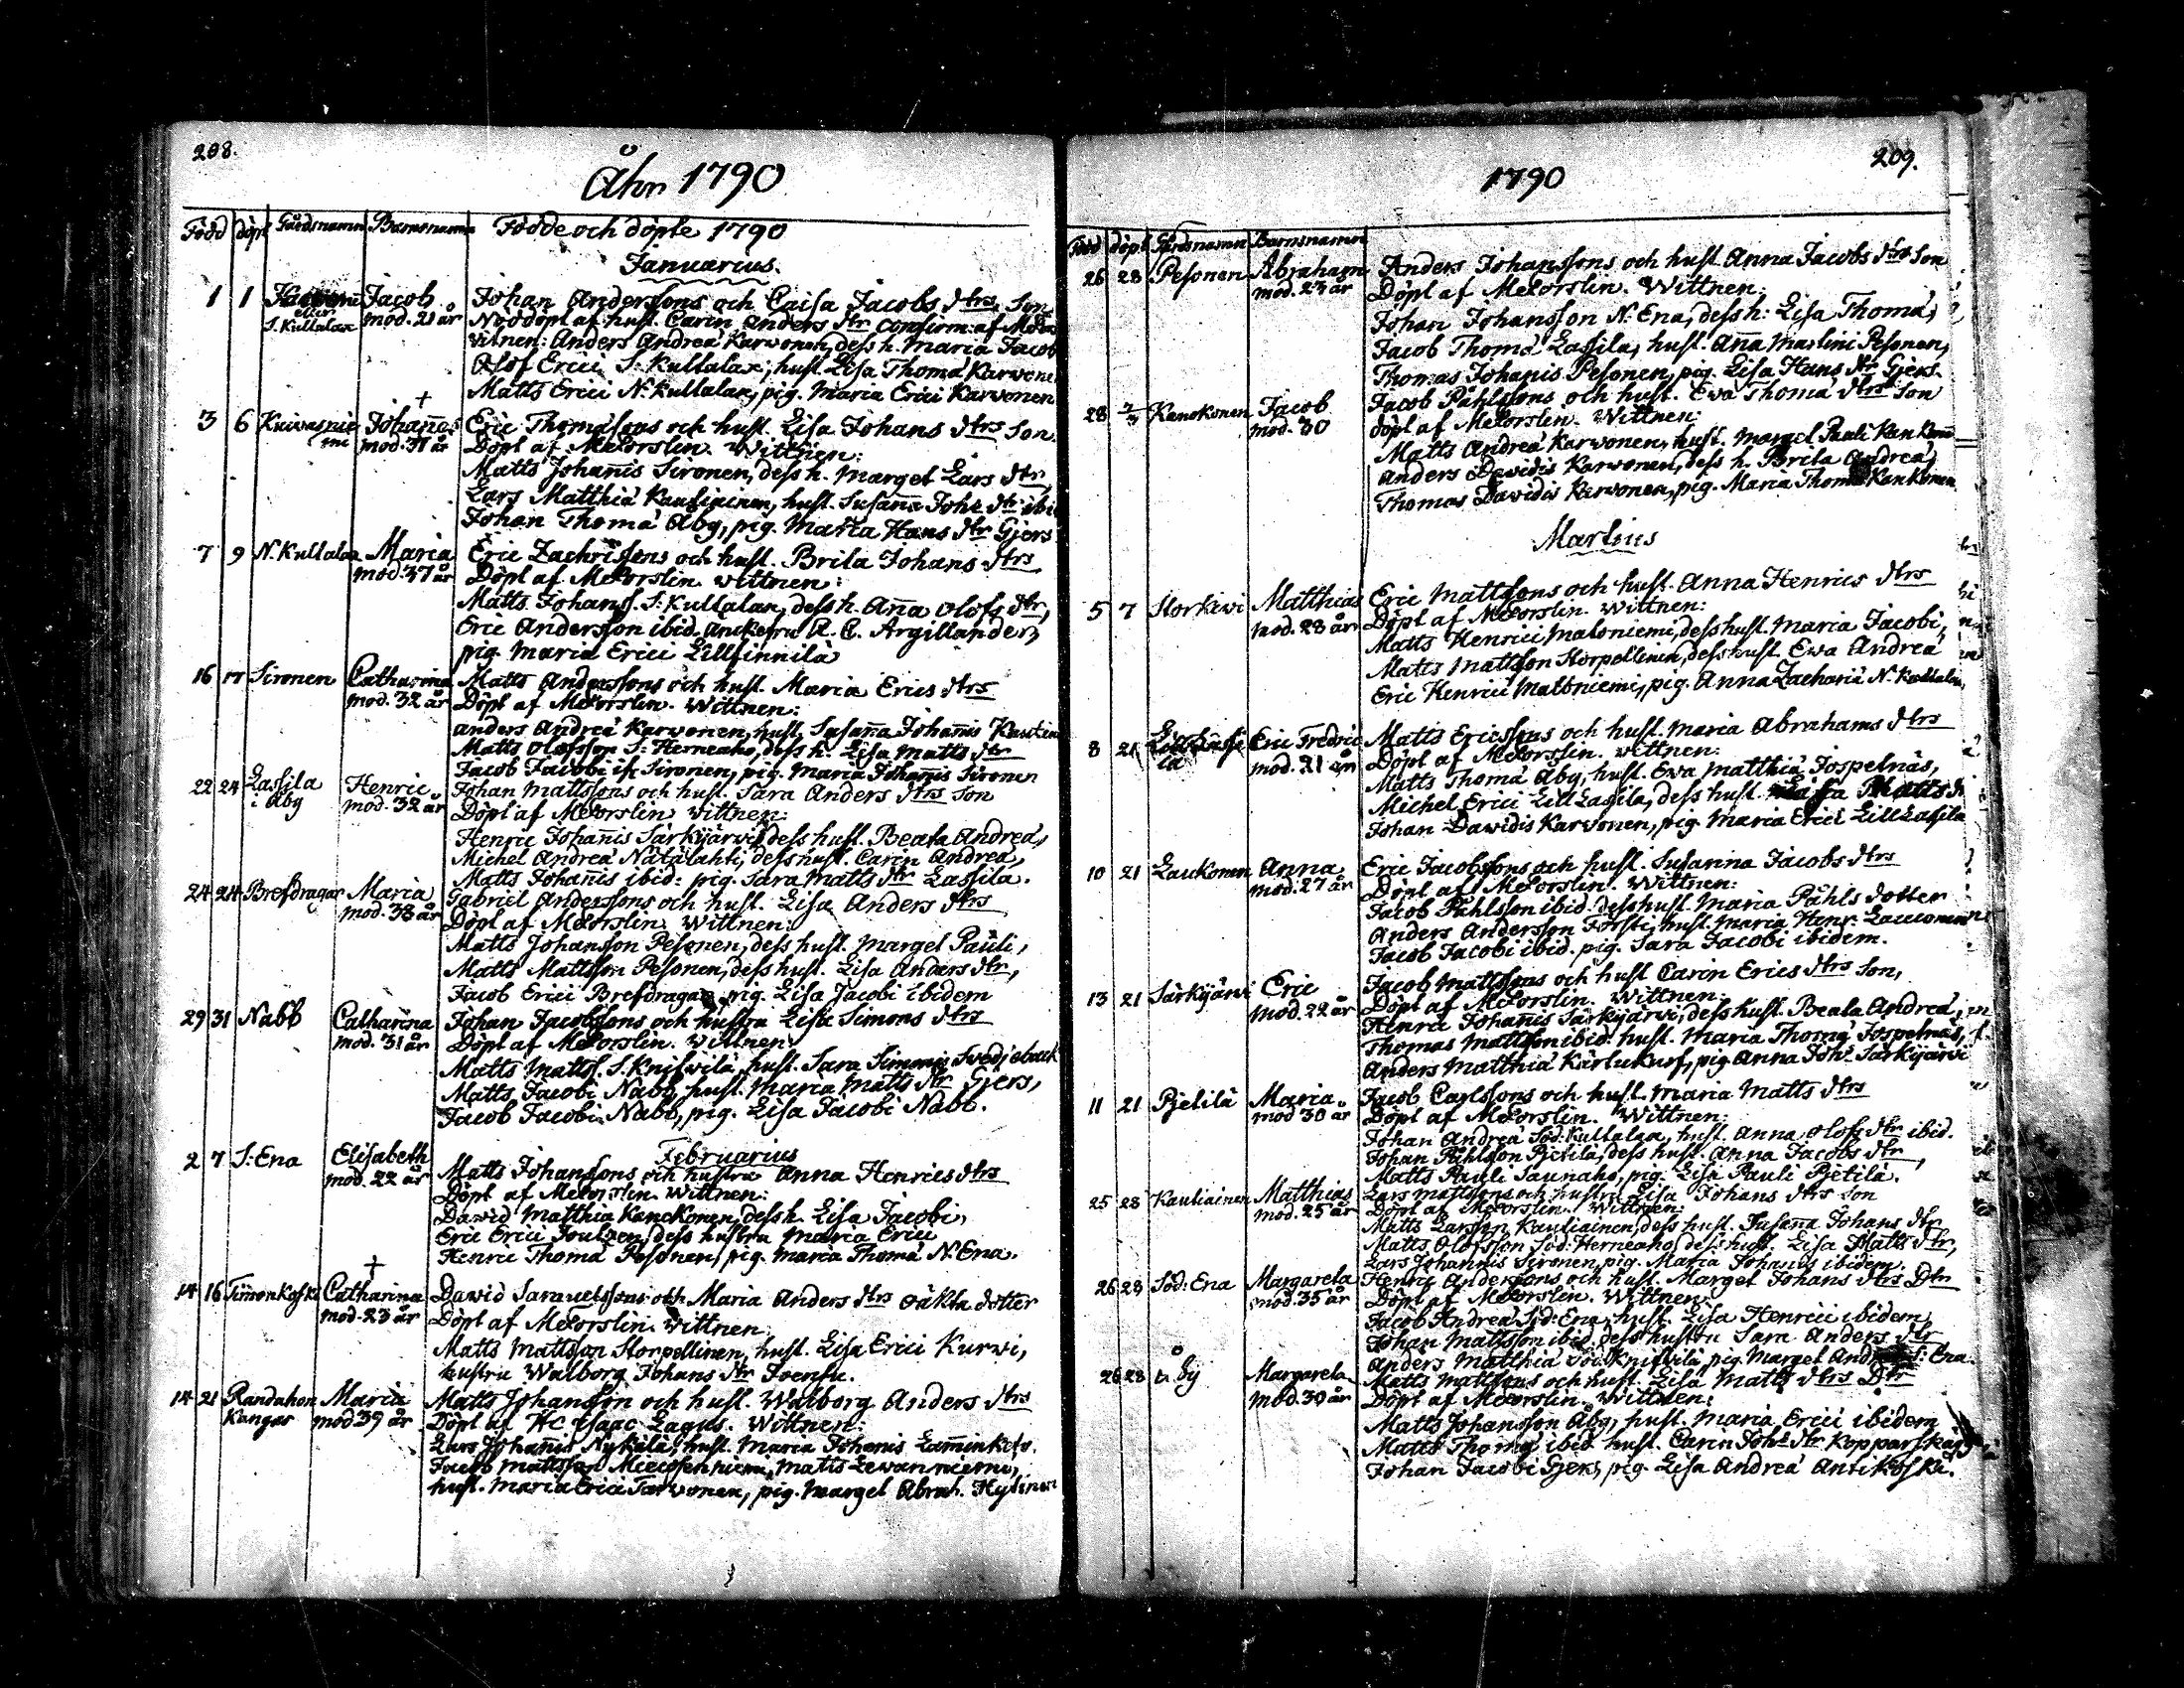 208.
Åhr 1790
Född döpt Gårdsnamn Barnsnamn Födde och döpte 1790
Januarius.
1 1 Jacob Johan Anderssons och Caisa Jacobs dtrs Son
eller S. Kullalax mod. 21 år Nöddöpt af hust. Carin Anders dtr confirm. af
Vitnen: Anders Andreæ Karvonen, dess h. Maria Jacob
Olof Erici S: Kullalax, hust. Lisa Thomæ Karvone
Matts Erici N. Kullalax, pig. Maria Erici Karvonen
3 6 † Johannes Eric Thomæsons och hust. Lisa Johans dtrs Son
mod. 31 år Döpt af Mr Forslin. Wittnen:
Matts Johannis Sironen, dess h. Marget Lars dtr,
Lars Matthiæ Kauliainen, hust. Susanna Johs dtr ibid
Johan Thomæ Åby, pig. Maria Hans dtr Gjers
7 9 N. Kullalax Maria Eric Zachrissons och hust. Brita Johans dtrs
mod. 37 år Döpt af Mr Forslin. Wittnen:
Matts Johanss. S: Kullalax, dess h. Anna Olofs dtr,
Eric Andersson ibid. Anckefru A. C. Argillander,
pig. Maria Erici Lillfinnilä
16 17 Sironen Catharina Matts Anderssons och hust. Maria Erics dtrs
mod. 32 år Döpt af Mr Forslin. Wittnen:
Anders Andreæ Karvonen, hust. Susanna Johannis
Matts Olofsson S: Herneaho, dess h. Lisa Matts dtr
Jacob Jacobi Sironen, pig. Maria Johannis Sironen
22 24 Lassila i Åby Henric Johan Mattssons och hust. Sara Anders dtrs Son
mod. 32 år Döpt af Mr Forslin. Wittnen:
Henric Johannis Särkijärvi, dess hust. Beata Andreæ,
Michel Andreæ Nätälahti, dess hust. Carin Andreæ,
Matts Johannis ibid: pig. Sara Matts dtr Lassila.
24 24 Brefdragar Maria Gabriel Anderssons och hust. Lisa Anders dtrs
mod. 38 år Döpt af Mr Forslin. Wittnen:
Matts Johansson Pesonen, dess hust. Marget Pauli,
Matts Mattsson Pesonen, dess hust. Lisa Anders dtr,
Jacob Erici Brefdragar pig. Lisa Jacobi ibidem
29 31 Nabb Catharina Johan Jacobssons och hustru Lisa Simons dtrs
mod. 31 år Döpt af Mr Forslin. Wittnen:
Matts Matts. S. Knifsilä, hust. Sara Simonis Svedjeback
Matts Jacobi Nabb, hust. Maria Matts dtr Gjers,
Jacob Jacobi Nabb, pig. Lisa Jacobi Nabb.
Februarius
2 7 S: Ena Elisabeth Matts Johanssons och hustru Anna Henrics dtrs
mod. 22 år Döpt af Mr Forslin. Wittnen:
David Matthiæ Kanckonen, dess h. Lisa Jacobi,
Eric Erici Joutzen, dess hustru Maria Erici
Henric Thomæ Pesonen, pig. Maria Thomæ N. Ena.
14 16 Timonkoski † Catharina David Samuelssons och Maria Anders dtrs oäkta dotter
mod. 23 år Döpt af Mr Forslin. Wittnen:
Matts Mattsson Storpellinen, hust. Lisa Erici Kurvi,
hustru Walborg Johans dtr Joensu.
14 21 Randahon Kangas Maria Matts Johansson och hust. Walborg Anders dtrs
mod 39 år Döpt af Hc Isaac Lagus. Wittnen:
Lars Johannis Nykälä, hust. Maria Johannis
Jacob Mattsson Matts Levanniemi,
hust. Maria Erici pig. Marget Abrah.
209.
1790
Född döpt Gårdsnamn Barnsnamn
26 28 Pesonen Abraham Anders Johanssons och hust. Anna Jacobs dtrs Son
mod. 23 år Döpt af Mr Forslin. Wittnen:
Johan Johansson N: Ena, dess h: Lisa Thomæ,
Jacob Thomæ Lassila, hust. Anna Martini Pesonen,
Thomas Johannis Pesonen, pig. Lisa Hans dtr Gjers.
28 2/3 Kanckonen Jacob Jacob Påhlssons och hust. Eva Thomæ dtrs Son
mod. 30 döpt af Mr Forslin. Wittnen:
Matts Andreæ Karvonen, hust. Marget Pauli
Anders Davidis Karvonen, dess h. Brita Andreæ,
Thomas Davidis Karvonen, pig. Maria Thomæ Kankonen
Martius
5 7 Storkivi Matthias Eric Mattsons och hust. Anna Henrics dtrs
mod. 28 år Döpt af Mr Forslin. Wittnen:
Matts Henrici Matoniemi, dess hust. Maria Jacobi,
Matts Mattsson Storpellinen, dess hust. Eva Andreæ
Eric Henrici Matoniemi, pig. Anna Zachariæ N. Kullalax,
8 21 Eric Fredric Matts Ericssons och hust. Maria Abrahams dtrs
mod. 21 år Döpt af Mr Forslin. Wittnen:
Matts Thomæ Åby, hust. Eva Matthiæ Jospelnäs,
Michel Erici LillLassila, dess hust. Matts
Johan Davidis Karvonen, pig. Maria Erici LillLassila
10 21 Laukonen Anna Eric Jacobssons och hust. Susanna Jacobs dtrs
mod. 27 år Döpt af Mr Forslin. Wittnen:
Jacob Påhlsson ibid. dess hust. Maria Påhls dotter
Anders Andersson Forsti, hust. Maria Henr.
Jacob Jacobi ibid. pig. Sara Jacobi ibidem.
13 21 Särkijärvi Eric Jacob Mattssons och hust Carin Erics dtrs Son,
mod. 22 år Döpt af Mr Forslin. Wittnen:
Henric Johannis Särkijärvi, dess hust. Beata Andreæ,
Thomas Mattsson ibid: hust. Maria Thomæ Jospelnäs,
Anders Matthiæ pig. Anna Johs Särkijärvi
11 21 Pjetilä Maria Jacob Carlssons och hust. Maria Matts dtrs
mod 30 år Döpt af Mr Forslin. Wittnen:
Johan Andreæ Söd: Kullalax, hust. Anna Olofs dtr ibid.
Johan Påhlsson Pjetilä, dess hust. Anna Jacobs dtr,
Matts Pauli Saunaho, pig. Lisa Pauli Pjetilä.
25 28 Kauliainen Matthias Lars Mattssons och hustru Lisa Johans dtrs Son
mod. 25 år Döpt af Mr Forslin. Wittnen:
Matts Larsson Kauliainen, dess hust. Susanna Johans dtr
Matts Olofsson Söd: Herneaho, dess hust. Lisa Matts dtr,
Lars Johannis Sironen, pig. Maria Johannis ibidem.
26 28 Söd: Ena Margareta Henric Anderssons och hust. Marget Johans dtrs Dtr
mod. 35 år Döpt af Mr Forslin. Wittnen:
Jacob Andreæ Söd: Ena, hust. Lisa Henrici ibidem,
Johan Mattsson ibid. dess hustru Sara Anders dtr
Anders Matthiæ Söd: Knifsilä, pig. Marget S: Ena.
26 28 Åby Margareta Matts Mattssons och hust. Lisa Matts dtrs Dtr
mod. 30 år Döpt af Mr Forslin. Wittnen:
Matts Johansson Åby, hust. Maria Erici ibidem
Matts Thomæ ibid. hust. Carin Johs dtr
Johan Jacobi Gjers, pig. Lisa Andreæ Antikoski.